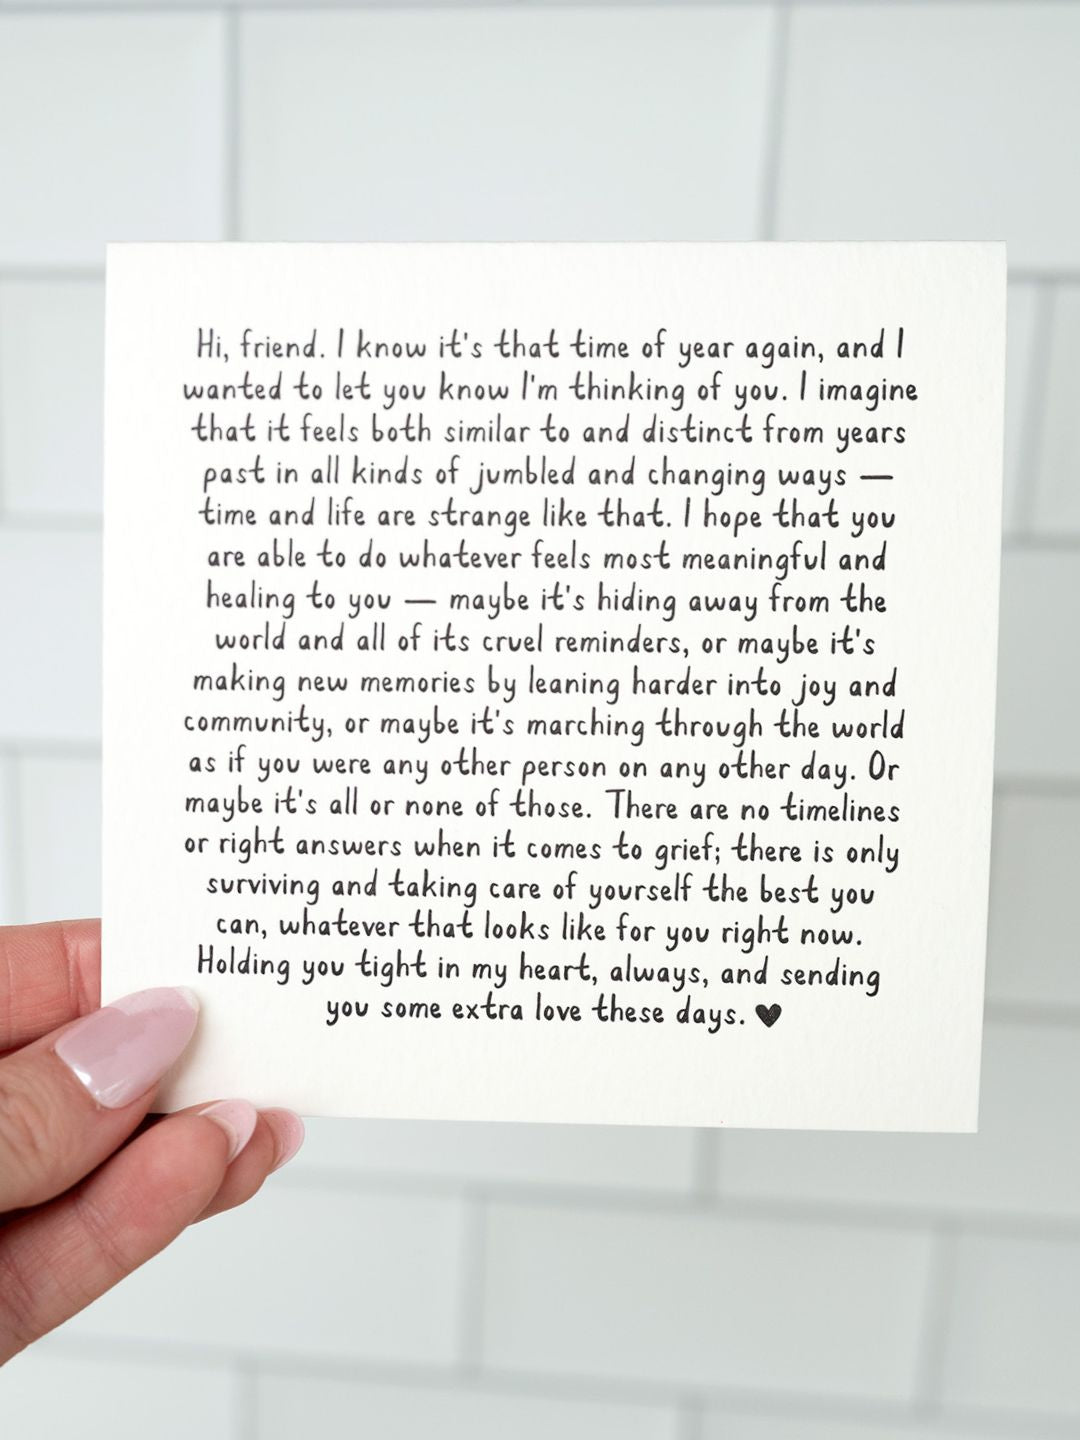 Hi, friend. I know it's that time of year again, and I
wanted to let you know I'm thinking of you. I imagine
that it feels both similar to and distinct from years
past in all kinds of jumbled and changing ways —
time and life are strange like that. I hope that you
are able to do whatever feels most meaningful and
healing to you — maybe it's hiding away from the
world and all of its cruel reminders, or maybe it's
making new memories by leaning harder into joy and
community, or maybe it's marching through the world
as if you were any other person on any other day. Or
maybe it's all or none of those. There are no timelines
or right answers when it comes to grief; there is only
surviving and taking care of yourself the best you
can, whatever that looks like for you right now.
Holding you tight in my heart, always, and sending
you some extra love these days. ♥